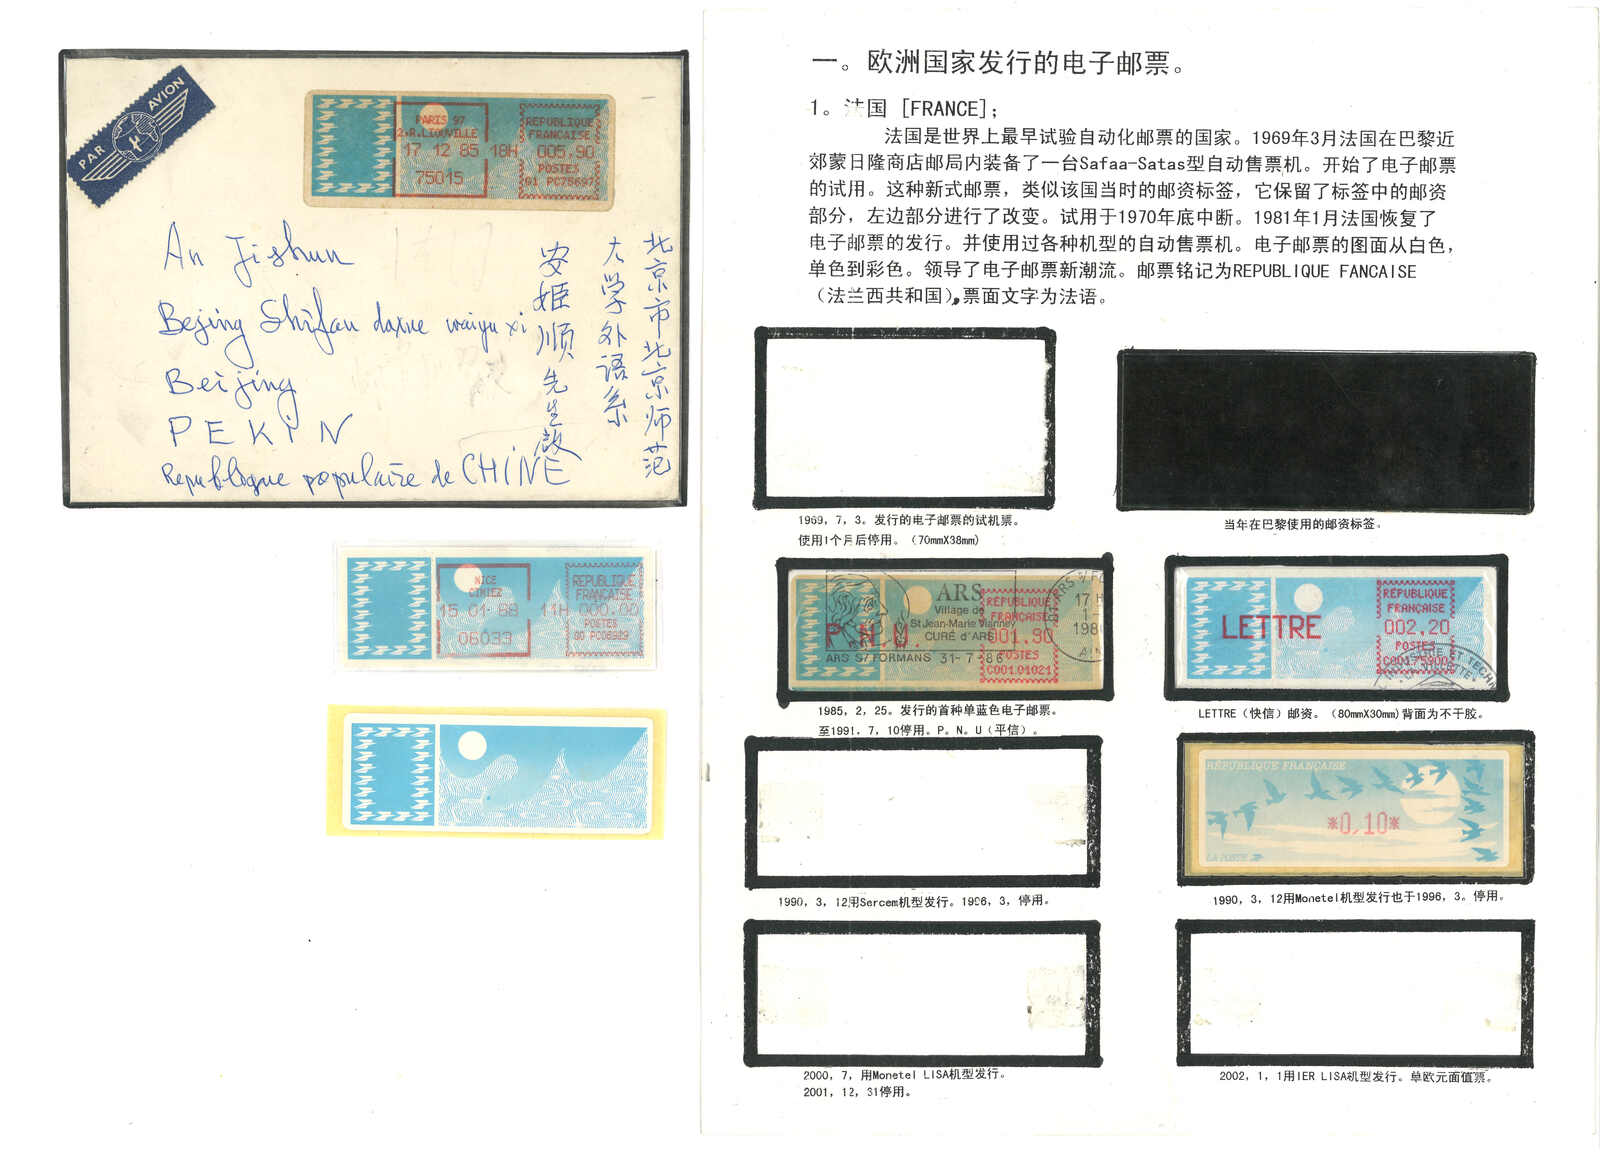 PAR AVION
PARIS 97
2.R.LIOUVILLE
17 12 85 18H
75015
REPUBLIQUE
FRANCAISE
005.90
POSTES
01 PC75697
An Jishun
Beijing Shifan daxue waiyu xi
Beijing
PEKIN
Republique populaire de CHINE
北京市北京师范
大学外语系
安姬顺先生啟
NICE
CIMIEZ
15 01 88 11H
06033
REPUBLIQUE
FRANCAISE
000.00
POSTES
一。欧洲国家发行的电子邮票。
1。法国 [FRANCE];
法国是世界上最早试验自动化邮票的国家。1969年3月法国在巴黎近
郊蒙日隆商店邮局内装备了一台Safaa-Satas型自动售票机。开始了电子邮票
的试用。这种新式邮票，类似该国当时的邮资标签，它保留了标签中的邮资
部分，左边部分进行了改变。试用于1970年底中断。1981年1月法国恢复了
电子邮票的发行。并使用过各种机型的自动售票机。电子邮票的图面从白色，
单色到彩色。领导了电子邮票新潮流。邮票铭记为REPUBLIQUE FANCAISE
（法兰西共和国），票面文字为法语。
1969，7，3。发行的电子邮票的试机票。
使用1个月后停用。（70mmX38mm)
当年在巴黎使用的邮资标签。
ARS
Village de
St Jean-Marie Vianney
CURÉ d'ARS
ARS S/ FORMANS 31-7-86
P.N.U.
RÉPUBLIQUE
FRANÇAISE
001.90
POSTES
C001.01021
1985，2，25。发行的首种单蓝色电子邮票。
至1991，7，10停用。P。N。U（平信）。
LETTRE
RÉPUBLIQUE
FRANÇAISE
002.20
POSTES
C00175900
LETTRE（快信）邮资。（80mmX30mm)背面为不干胶。
1990，3，12用Sercem机型发行。1996，3，停用。
RÉPUBLIQUE FRANÇAISE
*0,10*
LA POSTE
1990，3，12用Monetel机型发行也于1996，3。停用。
2000，7，用Monetel LISA机型发行。
2001，12，31停用。
2002，1，1用IER LISA机型发行。单欧元面值票。